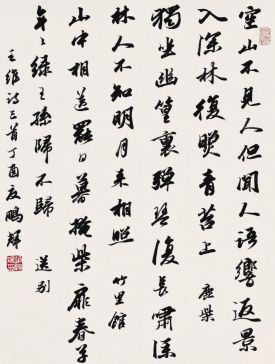 空山不見人但聞人語響返景
入深林復照青苔上 鹿柴
獨坐幽篁裏彈琴復長嘯深
林人不知明月来相照 竹里館
山中相送罷日暮掩柴扉春草
年々綠王孫歸不歸 送别
王維詩三首丁酉夏鵬輝